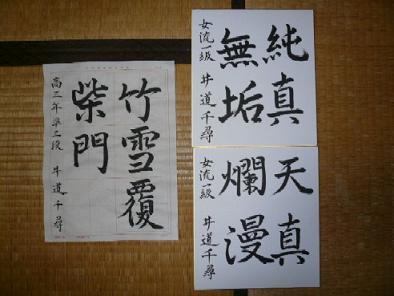 純真
無垢
女流一級 井道千尋
天真
爛漫
女流一級 井道千尋
竹雪覆
柴門
高二年準二段 井道千尋